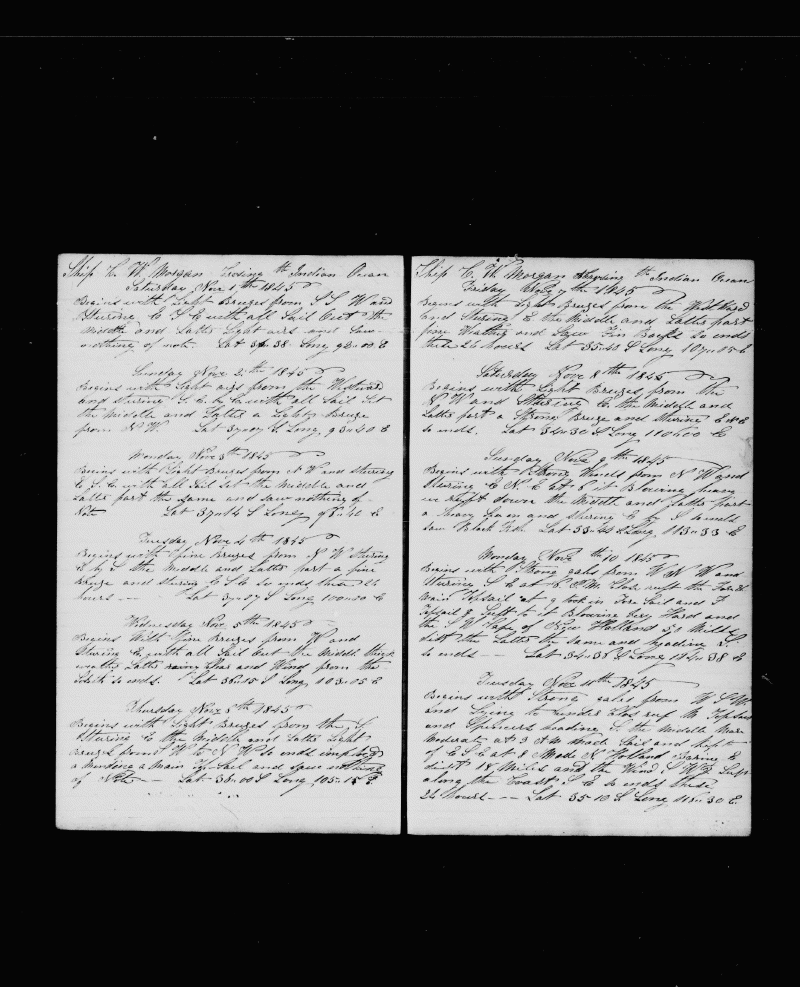 Ship C. W. Morgan Crosing th Indian Ocean
Saturday Nov 1th 1845
Begins with Light Breezes from S S W and
Stureing E S E with all Sail Out the
Middle and Latter Light airs and Saw
nothing of note Lat 36.38 Long 92.00 E
Sunday Nove 2th 1845
Begins with Light airs from the Westward
and stureing with all Sail Set
the Middle and Latter a Light Breeze
from N W. Lat 37.07 S Long 93.40 E
Monday Nove 3th 1845
Begins with Light Breezes from N W and stureing
E. S. E with all Sail Set the Middle and
Latter part the Same and saw nothing of
Note Lat 37.14 S Long E
Tuesday Nove 4th 1845
Begins with fine Breezes from N W stureing
E b S the Middle and Latter part a fine
Breeze and stureing E S E so ends thees 24
hours -- Lat 37.07 S Long 100.20 E
Wednesday Nov 5th 1845
Begins With Fine Breezes from W and
Stureing E with all Sail Out the Middle thick
weather Latter rainy and Wind from the
so ends. Lat 36.15 S Long 103.05 E
Thursday Nov 5th 1845
Begins with Light Breezes from the S
Stureing E the Middle and Latter Light
from W to N W So ends imployed
a Mending a Main Top Sail and Saw nothing
of Note -- Lat 36.00 S Long 105.15 E.
Ship C. W. Morgan th Indian Ocean
Friday Nov 7th 1845
Begins with Light Breezes from the Westward
and Stureing E the Middle and Latter part
fine Wather and Saw Fin Backs so ends
thees 24 hours Lat 35.43 S Long 107.05 E
Saturday Nove 8th 1845
Begins with Light Breezes from the
N W and Stureing E. the Middle and
Latter part a Strong Breeze and Stureing E
so ends. Lat 34.30 S Long 110.00 E
Sunday Nove 9th 1845
Begins with Strong Winds from N W and
Stureing E N E at 6 it Blowing heavy
down the Middle and Latter part
a heavy and stureing E by S So ends
Saw Black Fish. Lat 33.44 S Long 113.33 E
Monday Nov th 10 1845
Begins with Strong gales from W N W and
Stureing S E at 8 P M Close reeft the Fore &
Main Topsail at 9 took in Fore Sail and F
Topsail & it Blowing very Hard and
the S W Cape of New Holland 55 Miles
dist the Latter the same and heading S.
so ends -- Lat 34.38 S Long 114.38 E
Tuesday Nov 11th 1845
Begins with Strong gales from W S W
and Lying to under Clos reef M Top Sail
and Spencers heading S the Middle More
Moderate at 3 A M Made Sail and kept
of E S E at 8 Made N Holland Baring E
dist 18 Miles and the Wind S W
along the Coast S E so ends these
24 hours -- Lat 35.10 S Long 115.30 E.